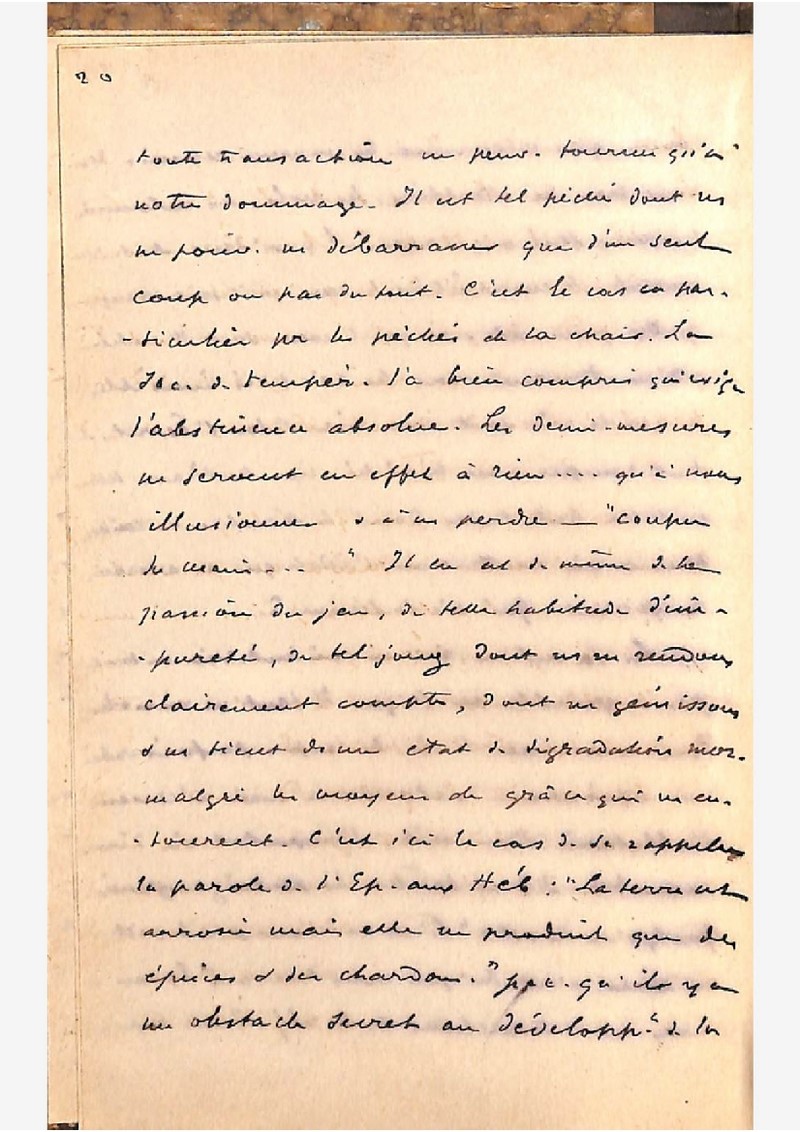 20
toute transaction ne peuv. tourner qu'à
notre dommage. Il est tel péché dont ns
ne pouv. ns débarrasser que d'un seul
coup ou pas du tout. C'est le cas en par-
-ticulier pr les péchés de la chair. La
Soc. de tempér. l'a bien compris qui exige
l'abstinence absolue. Les demi-mesures
ne servent en effet à rien .... qu'à nous
illusionner & à ns perdre — "couper
la main ... " Il en est de même de la
passion du jeu, de telle habitude d'im-
-pureté, de tel joug dont ns ns rendons
clairement compte, dont ns gémissons
& ns tient ds un état de dégradation mor.
malgré les moyens de grâce qui ns en-
-tourent. C'est ici le cas de se rappeler
la parole de l'Ep. aux Héb : "La terre est
arrosée mais elle ne produit que des
épines & des chardons." pce. qu'il y a
un obstacle secret au développt. de la